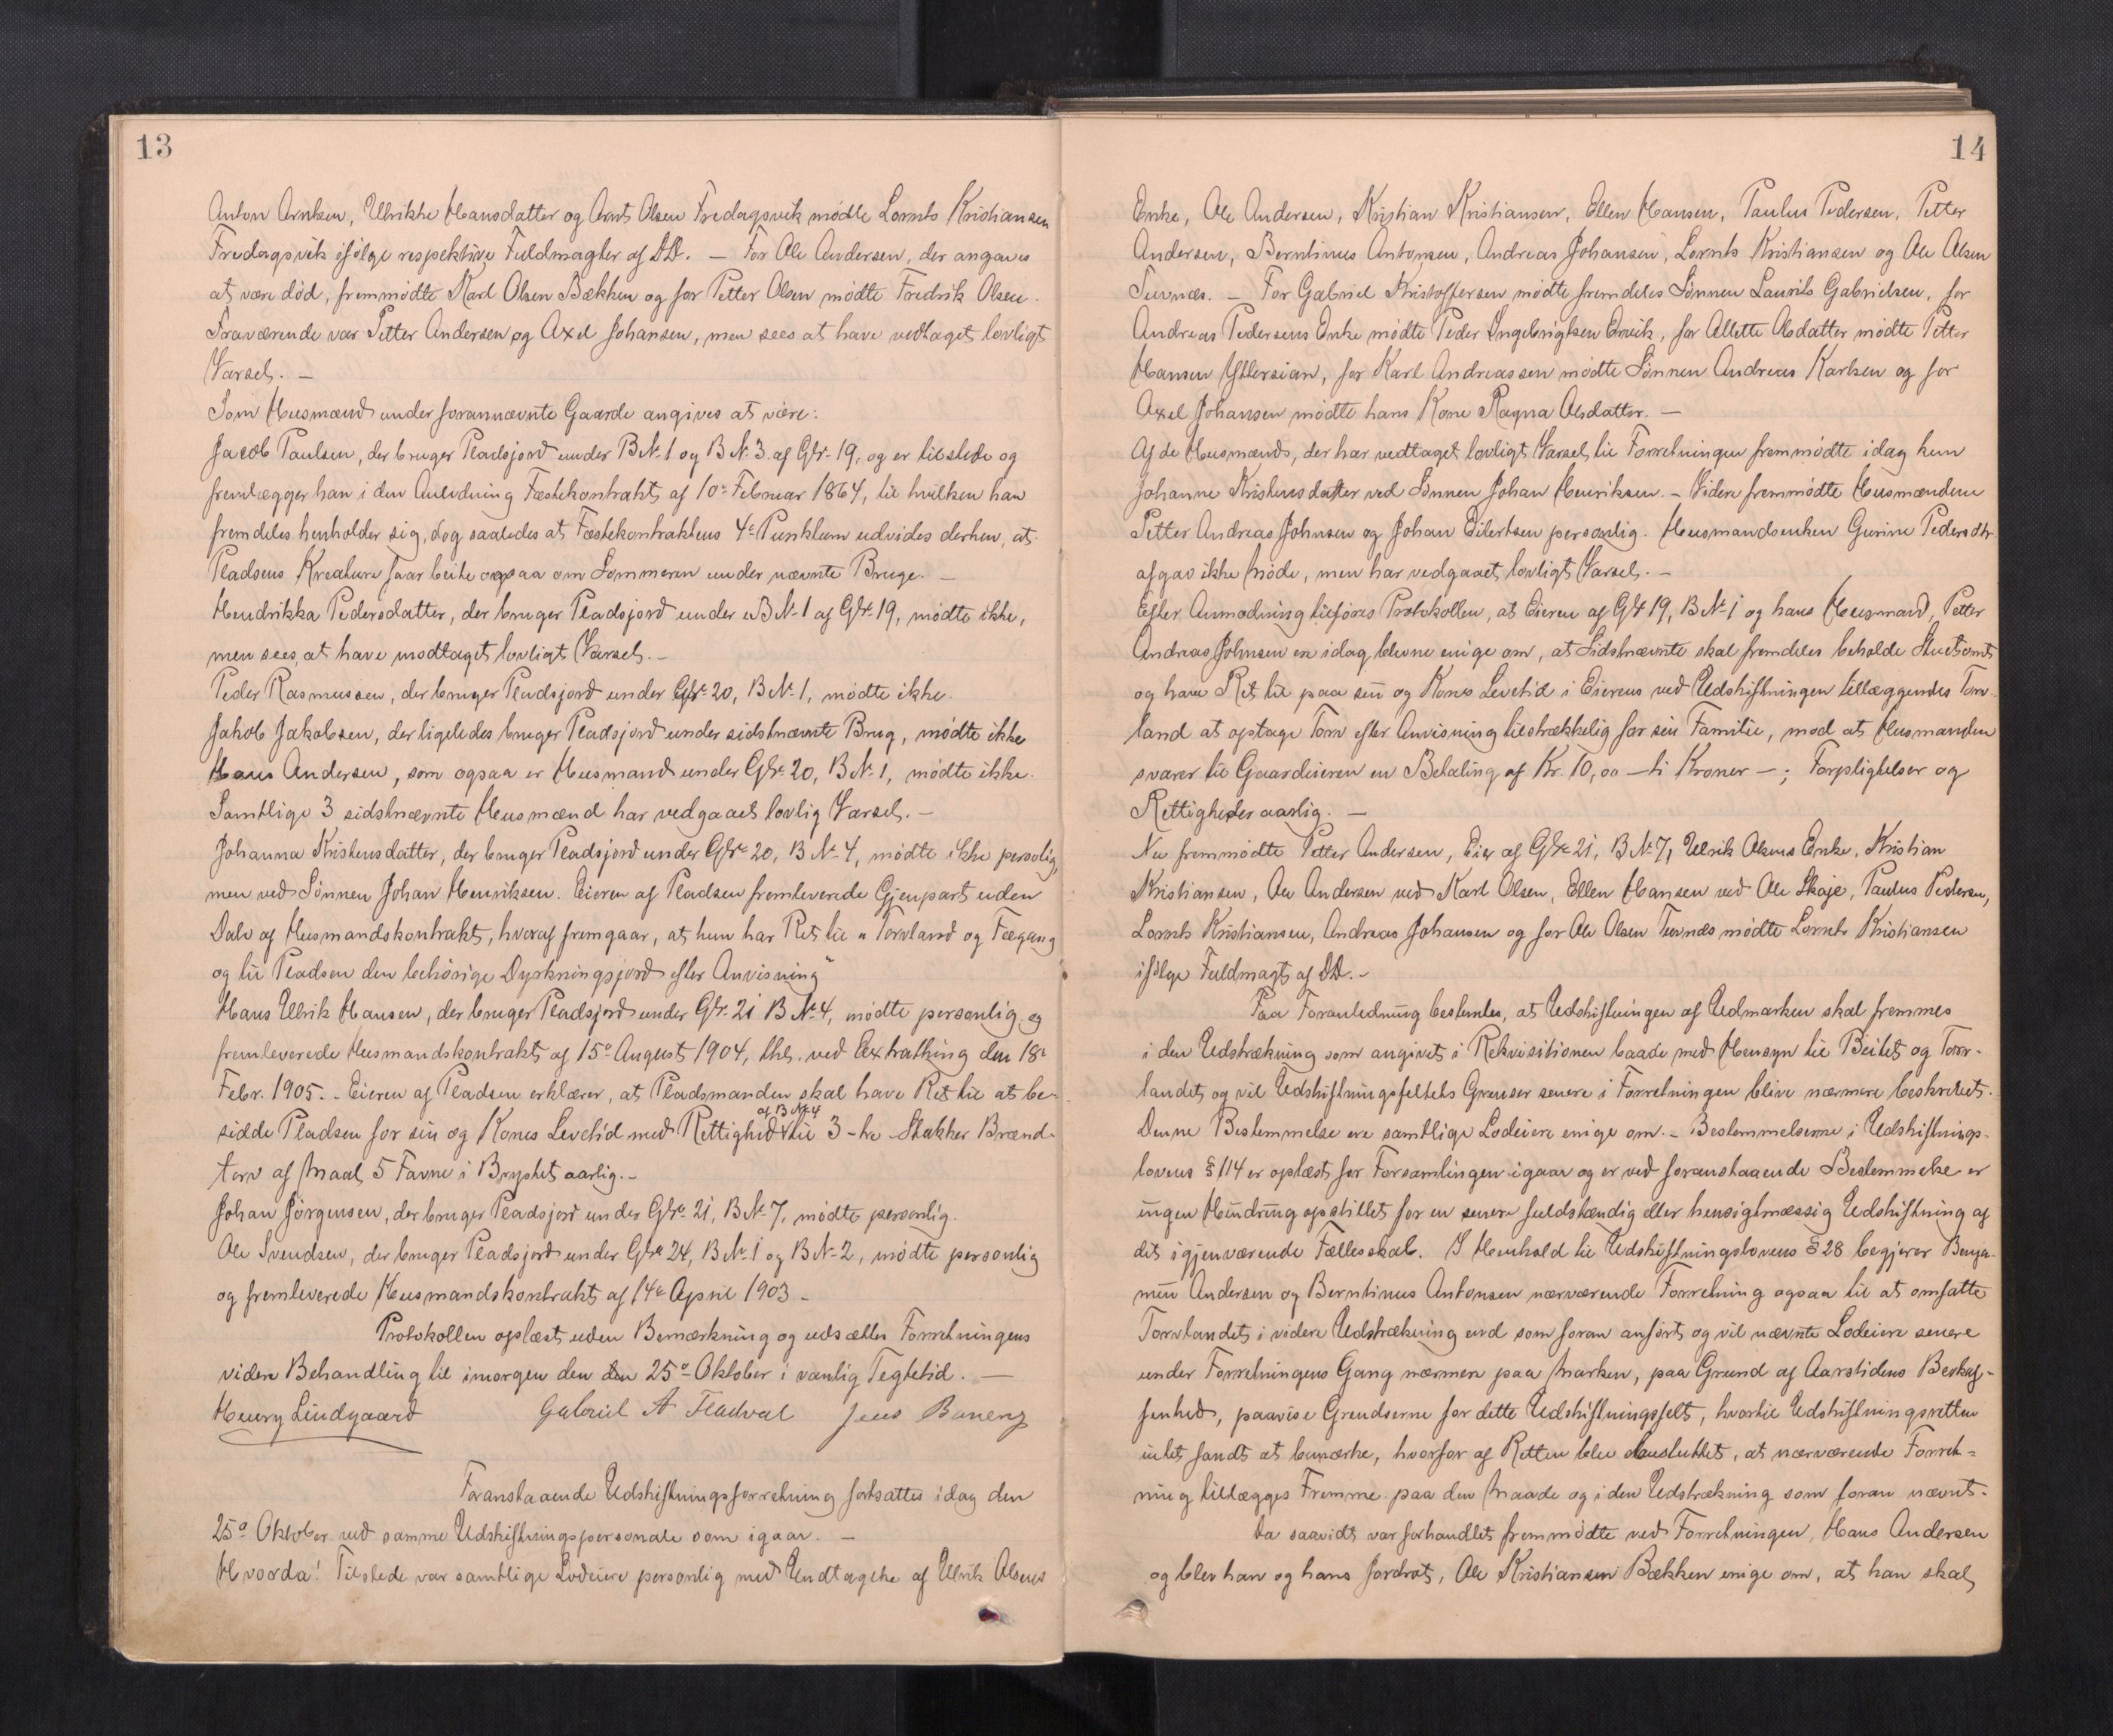 13
Anton Arntsen, Ulrikke Hansdatter og Arnt Olsen Fredagsvik mødte Lornts Kristiansen
Fredagsvik ifølge respektive Fuldmagter af DD. — For Ole Andersen, der angaves
at være død, fremmødte Karl Olsen Bækken og for Petter Olsen mødte Fredrik Olsen.
Fraværende var Petter Andersen og Axel Johansen, men sees at have vedtaget lovligt
Varsel. —
Som Husmænd under forannævnte Gaarde angives at være:
Jacob Paulsen, der bruger Pladsjord under B№ 1 og B№ 3 af G№ 19, og er tilstede og
fremlægger han i den Anledning Fæstekontrakt af 10de Februar 1864, til hvilken han
fremdeles henholder sig, dog saaledes at Fæstekontraktens 4de Punktum udvides derhen, at
Pladsens Kreature faar beite ogsaa om Sommeren under nævnte Bruge. —
Hendrikka Pedersdatter, der bruger Pladsjord under B№ 1 af G№ 19, mødte ikke,
men sees at have modtaget lovligt Varsel. —
Peder Rasmussen, der bruger Pladsjord under G№ 20, B№ 1, mødte ikke.
Jakob Jakobsen, der ligeledes bruger Pladsjord under sidstnævnte Brug, mødte ikke
Hans Andersen, som ogsaa er Husmand under G№ 20, B№ 1, mødte ikke.
Samtlige 3 sidstnævnte Husmænd har vedgaaet lovlig Varsel. —
Johanna Kristensdatter, der bruger Pladsjord under G№ 20, B№ 4, mødte ikke persolig,
men ved Sønnen Johan Henriksen. Eieren af Pladsen fremleverede Gjenpart uden
Dato af Husmandskontrakt, hvoraf fremgaar, at hun har Ret til "Torvland og Fægang
og til Pladsen den behørige Dyrkningsjord efter Anvisning"
Hans Ulrik Hansen, der bruger Pladsjord under G№ 21 B№ 4, mødte personlig og
fremleverede Husmandskontrakt af 15de August 1904, thl. ved Extrathing den 18de
Febr. 1905. - Eieren af Pladsen erklærer, at Pladsmanden skal have Ret til at be-
af B№ 4
sidde Pladsen for sin og Kones Levetid med Rettighed til 3 - tre Stakker Brænd-
torv af Maal 5 Favne i Brystet aarlig. -
Johan Jørgensen, der bruger Pladsjord under G№ 21, B№ 7, mødte personlig.
Ole Svendsen, der bruger Pladsjord under G№ 24, B№ 1 og B№ 2, mødte personlig
og fremleverede Husmandskontrakt af 14de April 1903 -
Protokollen oplæst uden Bemærkning og udsættes Forretningens
videre Behandling til imorgen den den 25de Oktober i vanlig Tegtetid. —
Henry Lindgaard Gabriel A Fladval Jens
Foranstaaende Udskiftningsforretning fortsattes idag den
25de Oktober ved samme Udskiftningspersonale som igaar. —
Hvorda! Tilstede var samtlige Lodeiere personlig med Undtagelse af Ulrik Olsens
14
Enke, Ole Andersen, Kristian Kristiansen, Ellen Hansen, Paulus Pedersen, Petter
Andersen, Berntinus Antonsen, Andreas Johansen, Lornts Kristiansen og Ole Olsen
Tuvnæs. — For Gabriel Kristoffersen mødte fremdeles Sønnen Laurits Gabrielsen, for
Andreas Pedersens Enke mødte Peder Ingebrigtsen Ervik, for Allette Olsdatter mødte Petter
Hansen Yttersian, for Karl Andreassen mødte Sønnen Andreas Karlsen og for
Axel Johansen mødte hans Kone Ragna Olsdatter. —
Af de Husmænd, der har vedtaget lovligt Varsel til Forretningen fremmødte idag kun
Johanne Kristensdatter ved Sønnen Johan Henriksen. - Videre fremmødte Husmændene
Petter Andreas Johnsen og Johan Eilertsen personlig. Husmandsenken Gurine Pedersdtr.
afgav ikke Møde, men har vedgaaet lovligt Varsel. —
Efter Anmodning tilføres Protokollen, at Eieren af G№ 19, B№ 1 og hans Husmand, Petter
Andreas Johnsen er idag blevne enige om, at Sidstnævnte skal fremdeles beholde Hustomt
og have Ret til paa sin og Kones Levetid i Eierens ved Udskiftningen tillæggendes Torv-
land at optage Torv efter Anvisning tilstrækkelig for sin Familie, mod at Husmanden
svarer til Gaardeieren en Betaling af Kr. 10,00 — ti Kroner —; Forpligtelser og
Rettigheder aarlig. —
Nu fremmødte Petter Andersen, Eier af G№ 21, B№ 7, Ulrik Olsens Enke, Kristian
Kristiansen, Ole Andersen ved Karl Olsen, Ellen Hansen ved Ole Skaje, Paulus Pedersen,
Lornts Kristiansen, Andreas Johansen og for Ole Olsen Tuvnæs mødte Lornts Kristiansen
ifølge Fuldmagt af DD. -
Paa Foranledning bestemtes, at Udskiftningen af Udmarken skal fremmes
i den Udstrækning som angivet i Rekvisitionen baade med Hensyn til Beitet og Torv-
landet og vil Udskiftningsfeltets Grænser senere i Forretningen blive nærmere beskrevet.
Denne Bestemmelse ere samtlige Lodeiere enige om. - Bestemmelserne i Udskiftnings-
lovens § 114 er oplæst for Forsamlingen igaar og er ved foranstaaende Bestemmelse er
ingen Hindring opstillet for en senere fuldstændig eller hensigtmæssig Udskiftning af
det igjenværende Fællesskab. I Henhold til Udskiftningslovens § 28 begjærer Benja-
min Andersen og Berntinus Antonsen nærværende Forretning ogsaa til at omfatte
Torvlandet i videre Udstrækning end som foran anført og vil nævnte Lodeiere senere
under Forretningens Gang nærmere paa Marken, paa Grund af Aarstidens Beskaf-
fenhed, paavise Grendserne for dette Udskiftningsfelt, hvortil Udskiftningsretten
intet fandt at bemærke, hvorfor af Retten blev besluttet, at nærværende Forret-
ning tillægges Fremme paa den Maade og i den Udstrækning som foran nævnt.
Da saavidt var forhandlet fremmødte ved Forretningen, Hans Andersen
og blev han og hans Jordrot, Ole Kristiansen Bækken enige om, at han skal